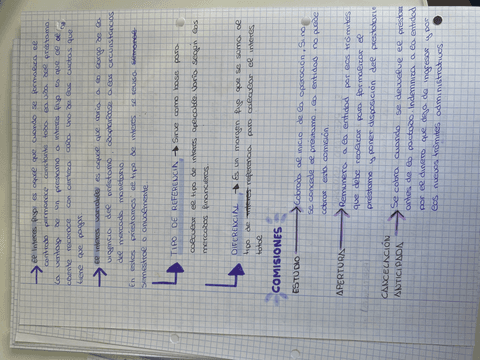 → El interés fijo es aquel que cuando se formaliza el
contrato permanece constante toda la vida del préstamo
La ventaja de un préstamo a interés fijo es que el
cliente conoce con certeza cada una de las cuotas que
tiene que pagar.
→ El interés variable es aquel que varía a lo largo de la
vigencia del préstamo, adaptándose a las circunstancias
del mercado monetario.
En estos préstamos el tipo de interés se revisa
semestral o anualmente.
→ TIPO DE REFERENCIA → Sirve como base para
calcular el tipo de interés aplicable varía según los
mercados financieros.
→ DIFERENCIAL → Es un margen fijo que se suma al
tipo de referencia para calcular el interés
total.
COMISIONES
ESTUDIO → Cobrada al inicio de la operación. Si no
se concede el préstamo la entidad no puede
cobrar esta comisión.
APERTURA → Remunera a la entidad por los trámites
que debe realizar para formalizar el
préstamo y poner disposición del prestatario
CANCELACIÓN
ANTICIPADA → Se cobra cuando se devuelve el préstamo
antes de lo pactado. Indemniza a la entidad
por el dinero que deja de ingresar y por
los nuevos trámites administrativos.